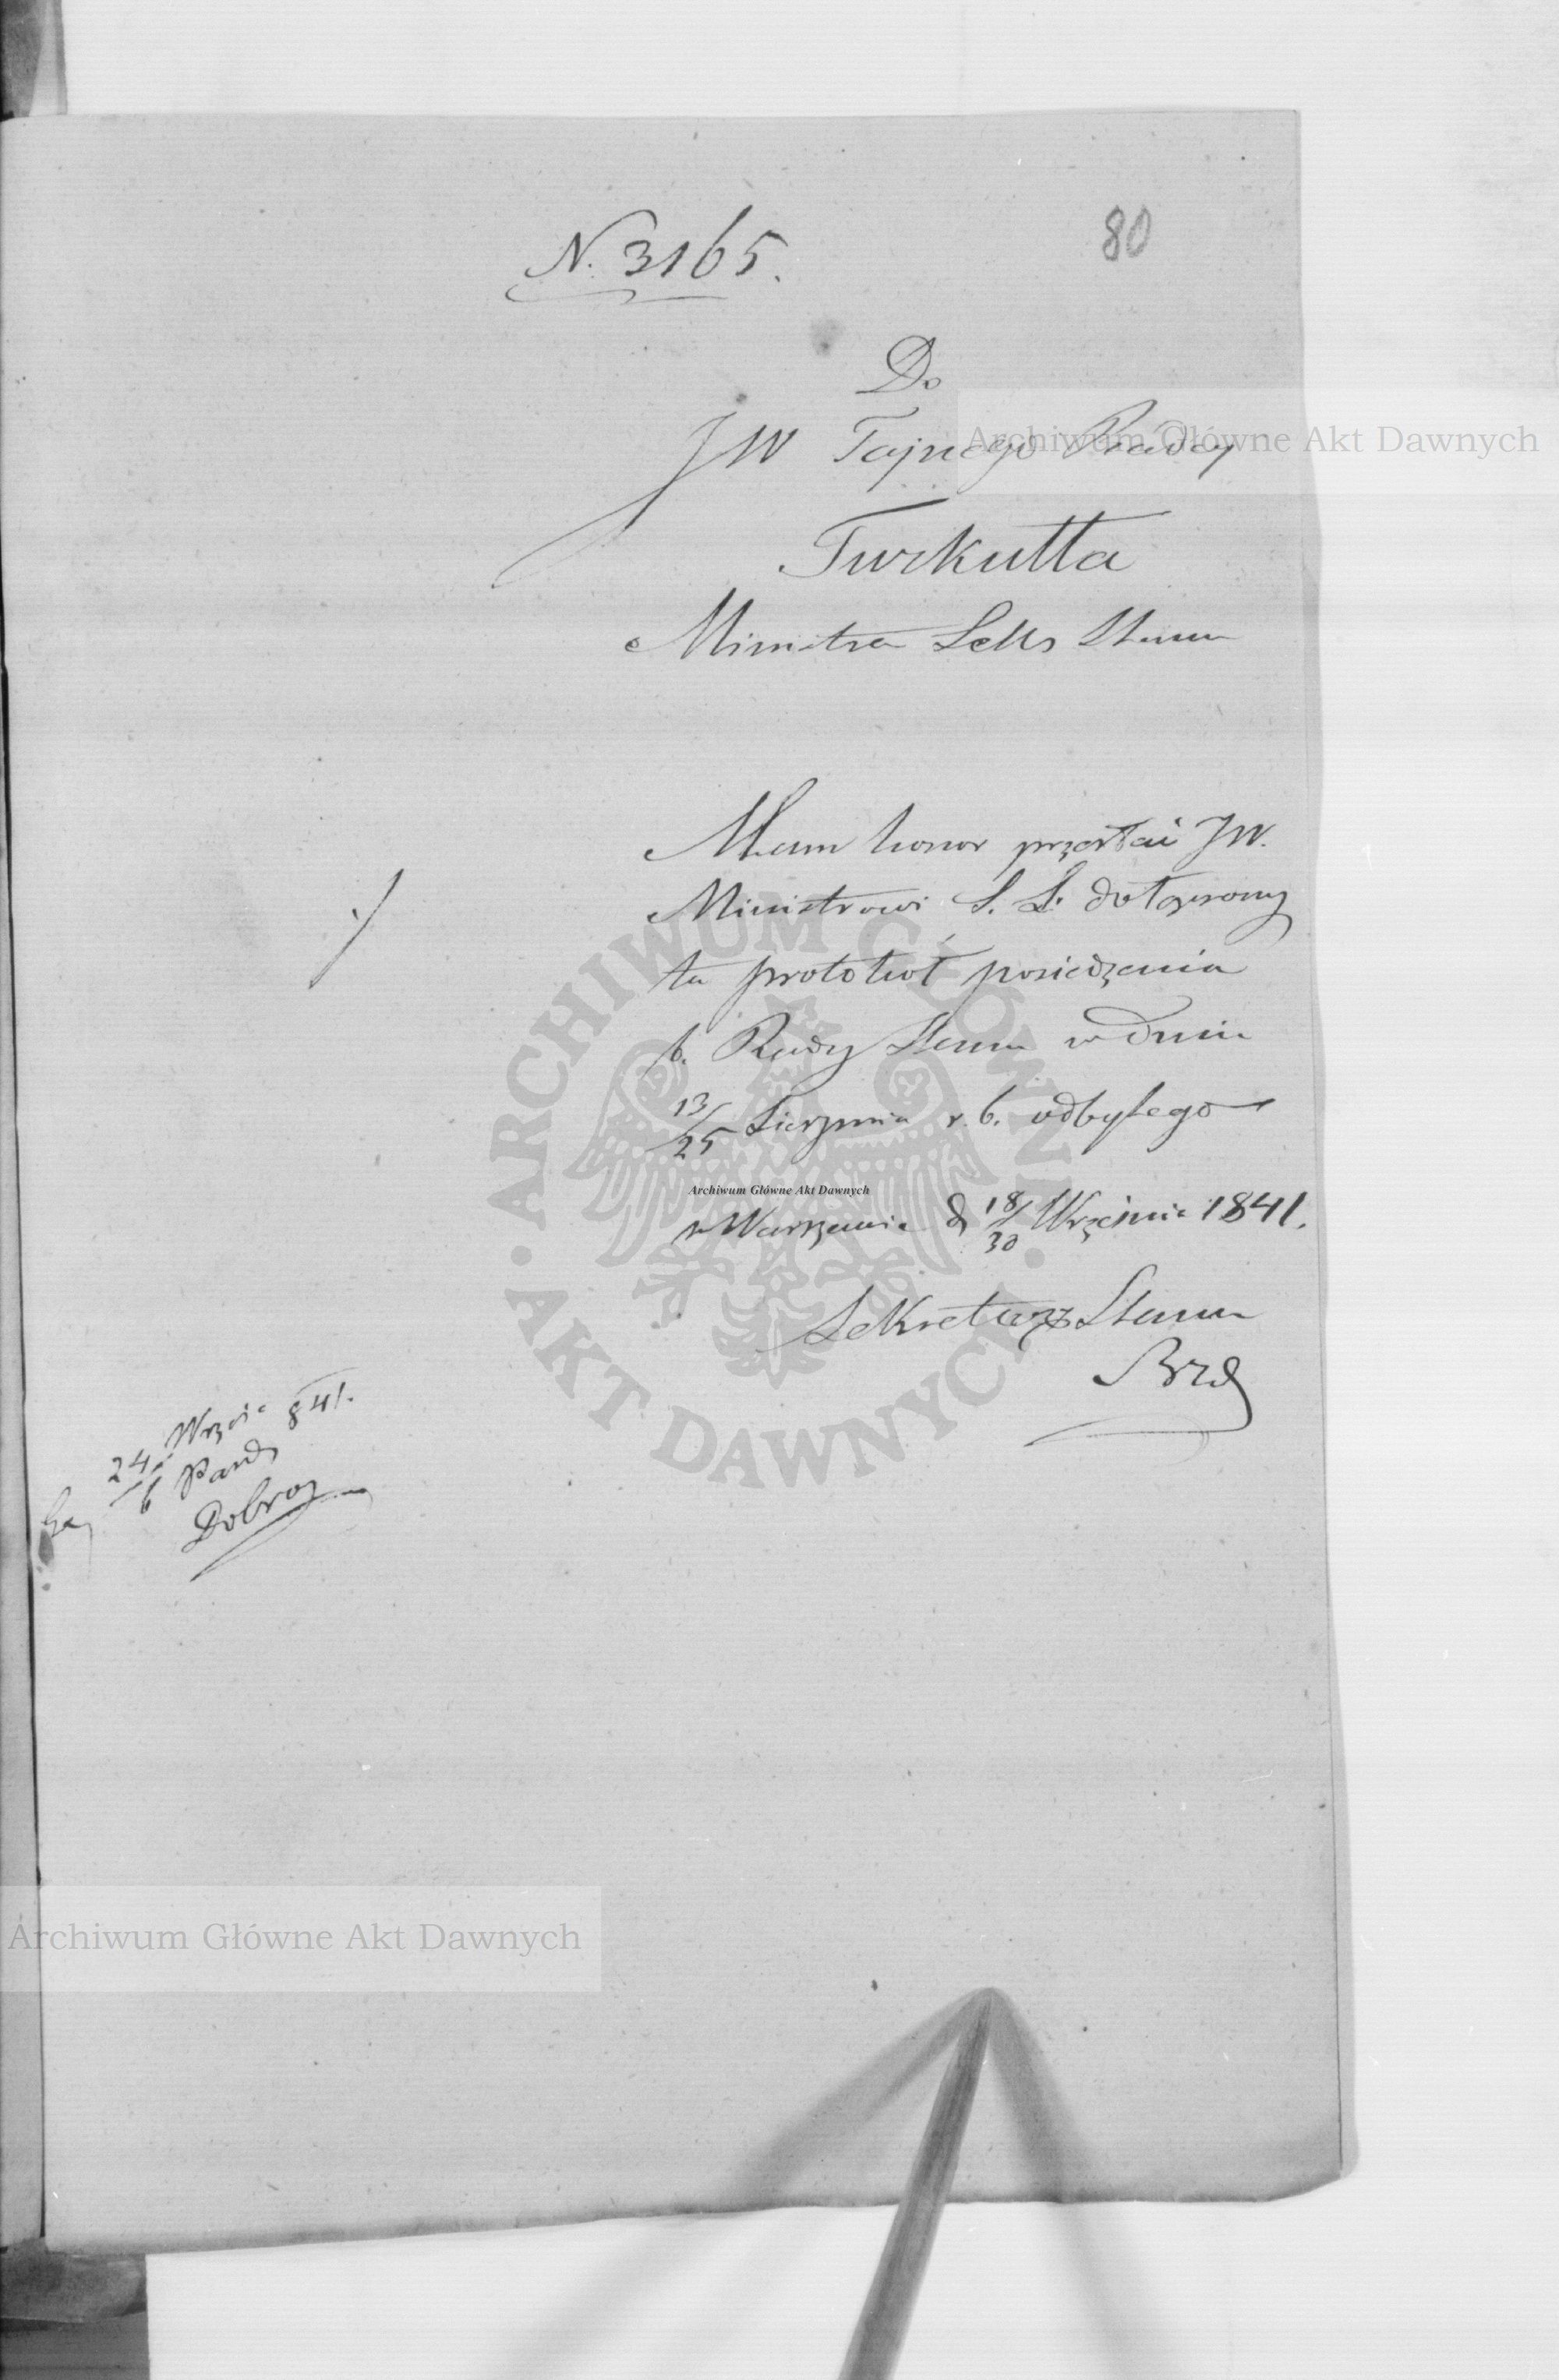 N. 3165.
80
Do
JW Tajnego Radcy
Turkułła
Ministra Sekr Stanu
Mam honor przesłać JW.
Ministrowi S. S. dołączony
tu protokół posiedzenia
b. Rady Stanu w dniu
13/25 Sierpnia r. b. odbytego
w Warszawie d 18/30 Września 1841.
Sekretarz Stanu
Brz
24 Wrześ
6 Paźdz 841.
Dobroz
Archiwum Główne Akt Dawnych
Archiwum Główne Akt Dawnych
ARCHIWUM GŁÓWNE AKT DAWNYCH
Archiwum Główne Akt Dawnych